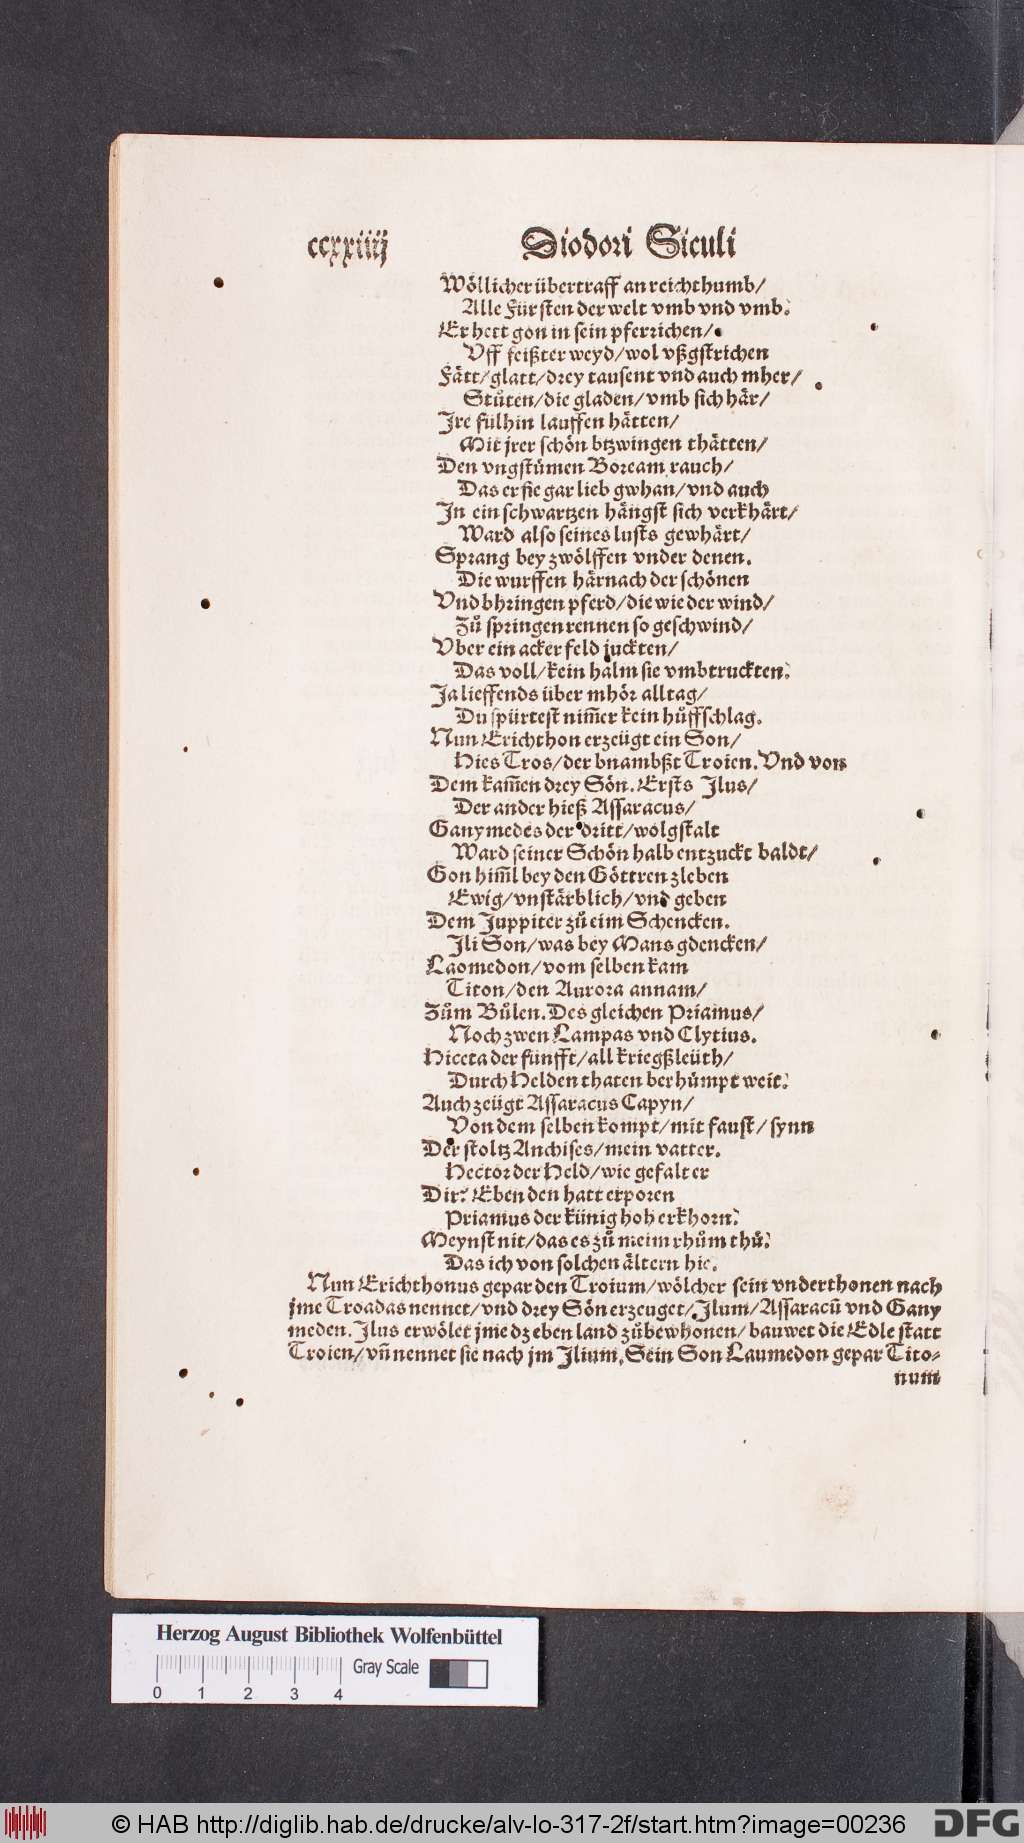 ccxxiiij Diodori Siculi
Wöllicher übertraff an reichthumb/
Alle Fürsten der welt vmb vnd vmb.
Er hett gon in sein pferrichen/
Vff feißter weyd/wol vßgstrichen
Fätt/glatt/drey tausent vnd auch mher/
Stůten/die gladen/vmb sich här/
Jre fülhin lauffen hätten/
Mit jrer schön btzwingen thätten/
Den vngstümen Boream rauch/
Das er sie gar lieb gwhan/vnd auch
In ein schwartzen hängst sich verkhärt/
Ward also seines lusts gewhärt/
Sprang bey zwölffen vnder denen.
Die wurffen härnach der schönen
Vnd bhringen pferd/die wie der wind/
Zů springen rennen so geschwind/
Vber ein acker feld juckten/
Das voll/kein halm sie vmbtruckten.
Ja lieffends über mhör alltag/
Du spürtest nim̄er kein hůffschlag.
Nun Erichthon erzeügt ein Son/
Hies Tros/der bnambßt Troien. Vnd von
Dem kam̄en drey Sön. Ersts Jlus/
Der ander hieß Assaracus/
Ganymedes der dritt/wolgstalt
Ward seiner Schön halb entzuckt baldt/
Gon him̄l bey den Göttren zleben
Ewig/vnstärblich/vnd geben
Dem Juppiter zů eim Schencken.
Jli Son/was bey Mans gdencken/
Laomedon/vom selben kam
Titon/den Aurora annam/
Zům Bůlen. Des gleichen Priamus/
Noch zwen Lampas vnd Clytius.
Hiceta der fünfft/all kriegßleüth/
Durch Helden thaten berhůmpt weit.
Auch zeügt Assaracus Capyn/
Von dem selben kompt/mit faust/synn
Der stoltz Anchises/mein vatter.
Hector der Held/wie gefalt er
Dir? Eben den hatt erporen
Priamus der künig hoh erkhorn.
Meynst nit/das es zů meim rhům thů.
Das ich von solchen ältern hie.
Nun Erichthonus gepar den Troium/wölcher sein vnderthonen nach
jme Troadas nennet/vnd drey Sön erzeuget/Jlum/Assaracū vnd Gany
meden. Jlus erwölet jme dz eben land zůbewhonen/bauwet die Edle statt
Troien/vn̄ nennet sie nach jm Jlium. Sein Son Laumedon gepar Tito-
num
Herzog August Bibliothek Wolfenbüttel
Gray Scale
0 1 2 3 4
© HAB http://diglib.hab.de/drucke/alv-lo-317-2f/start.htm?image=00236 DFG